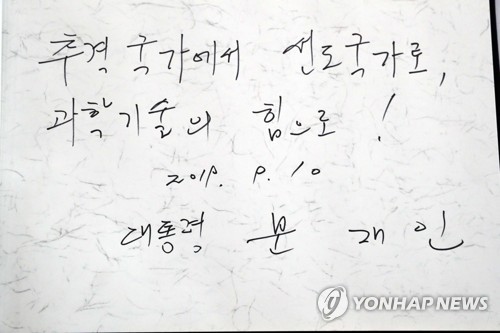 추격 국가에서 선도국가로,
과학기술의 힘으로!
2019. 9. 10
대통령 문 재 인
YONHAP NEWS